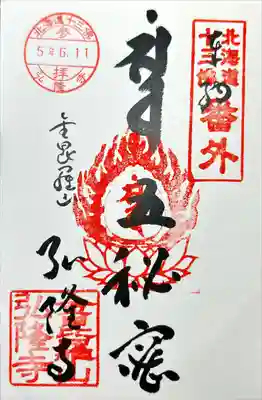 北海道
十三佛
番外
奉拝
五秘密
北海道十三佛
参拝
5年6.11
弘隆寺
金毘羅山
弘隆寺
金毘羅山
弘隆寺